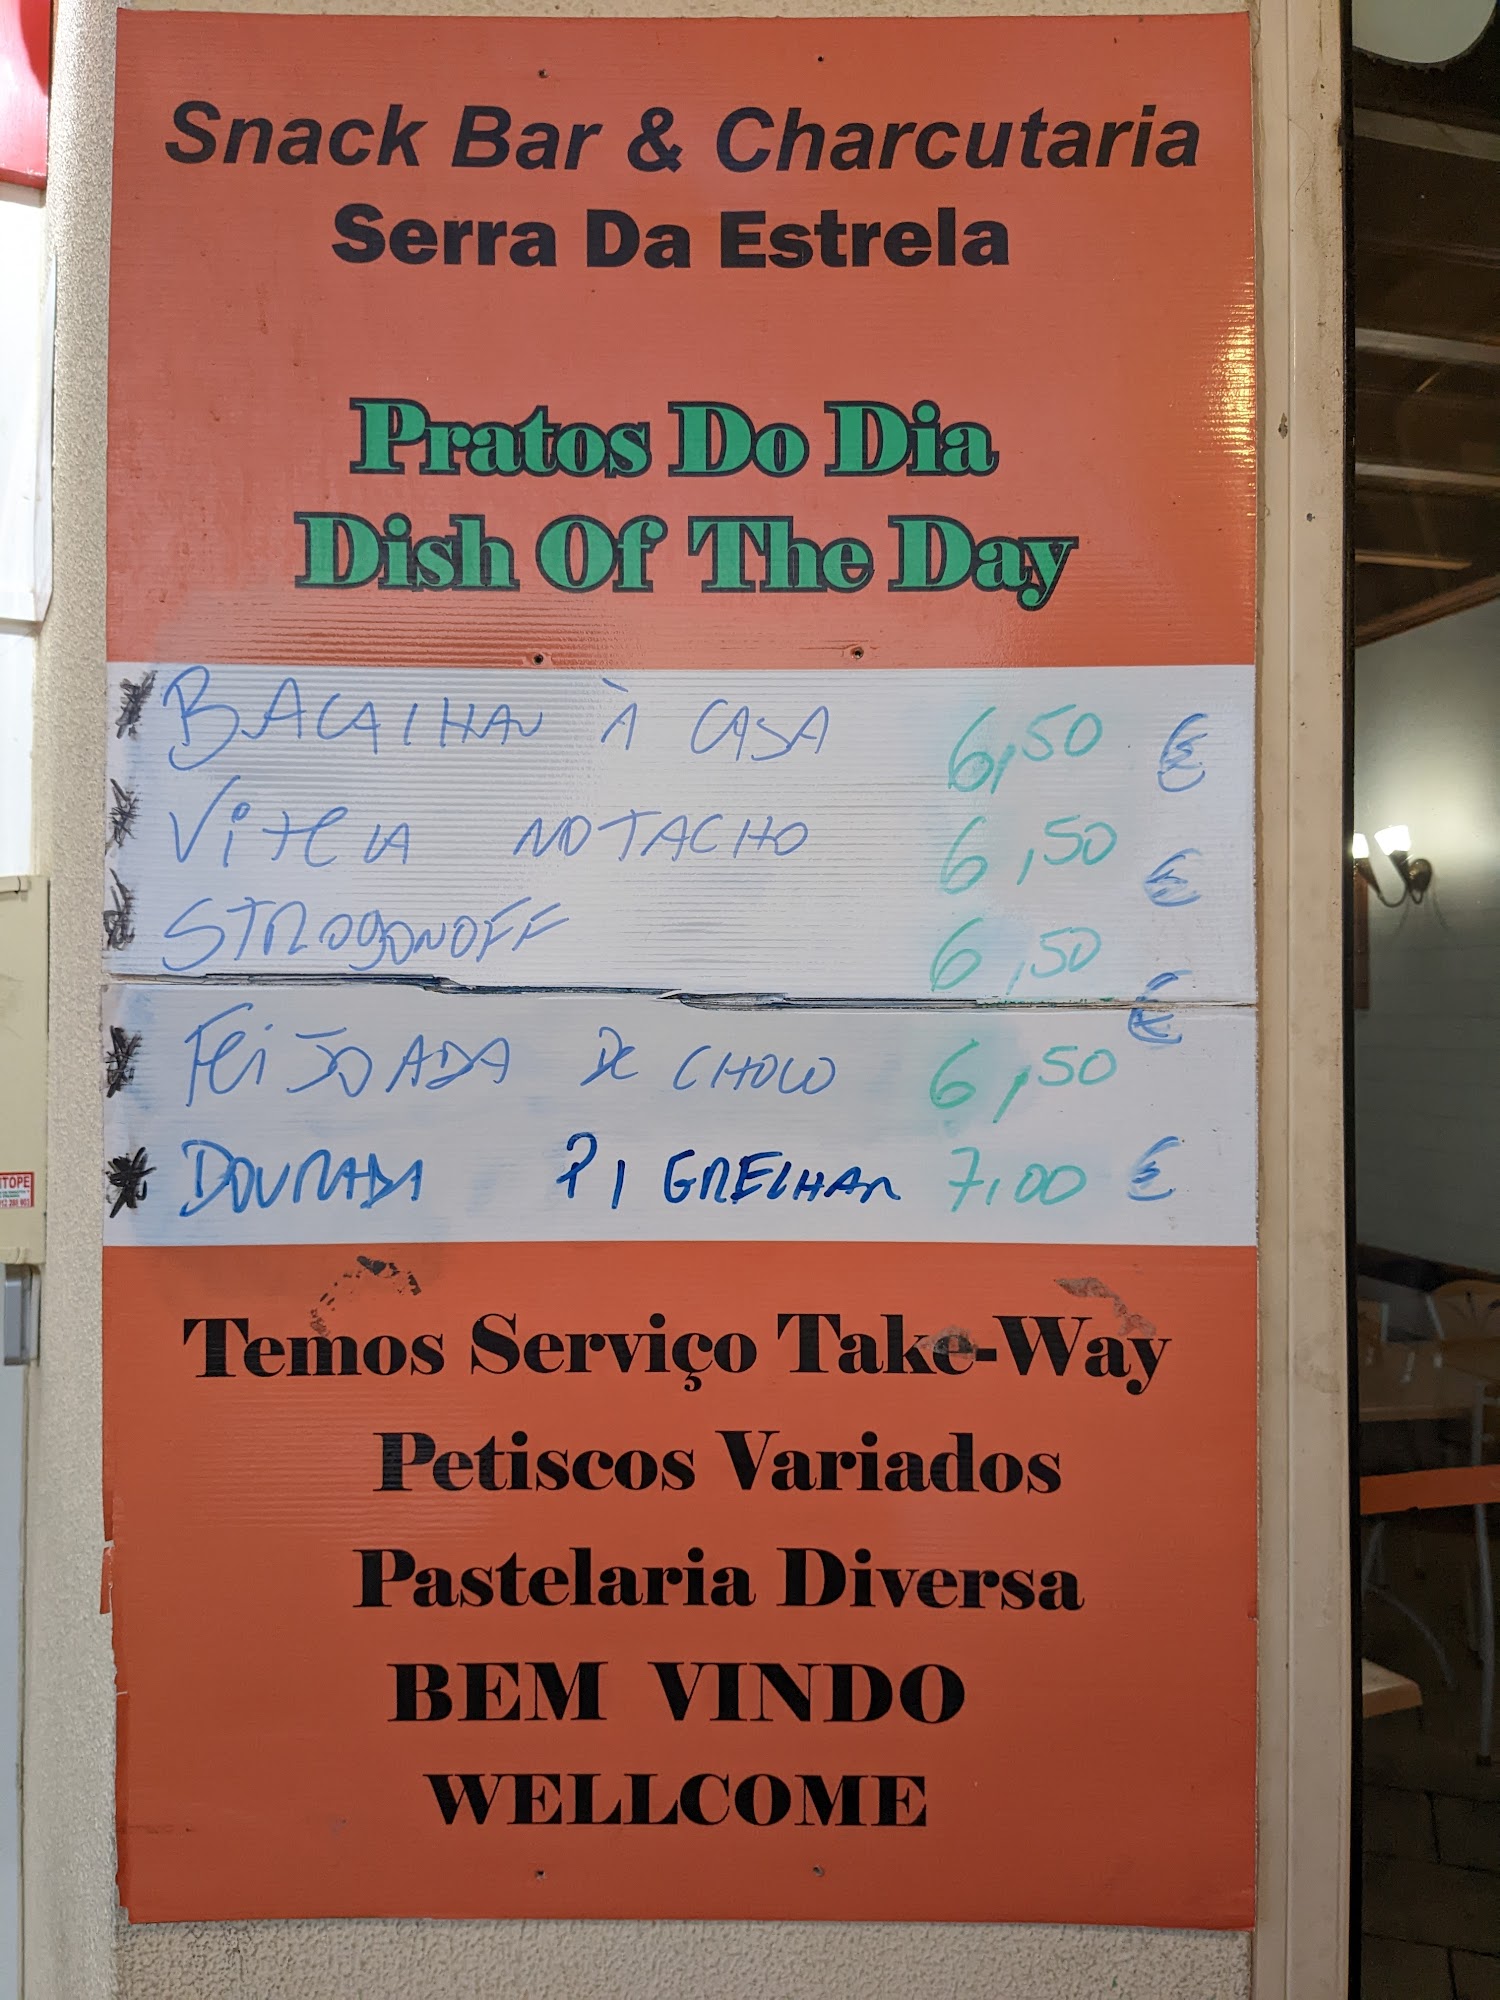 Snack Bar & Charcutaria
Serra Da Estrela
Pratos Do Dia
Dish Of The Day
* BACALHAU À CASA 6,50 €
* VITELA NO TACHO 6,50 €
* STROGONOFF 6,50 €
* FEIJOADA DE CHOCO 6,50
* DOURADA P/ GRELHAR 7,00 €
Temos Serviço Take-Way
Petiscos Variados
Pastelaria Diversa
BEM VINDO
WELLCOME